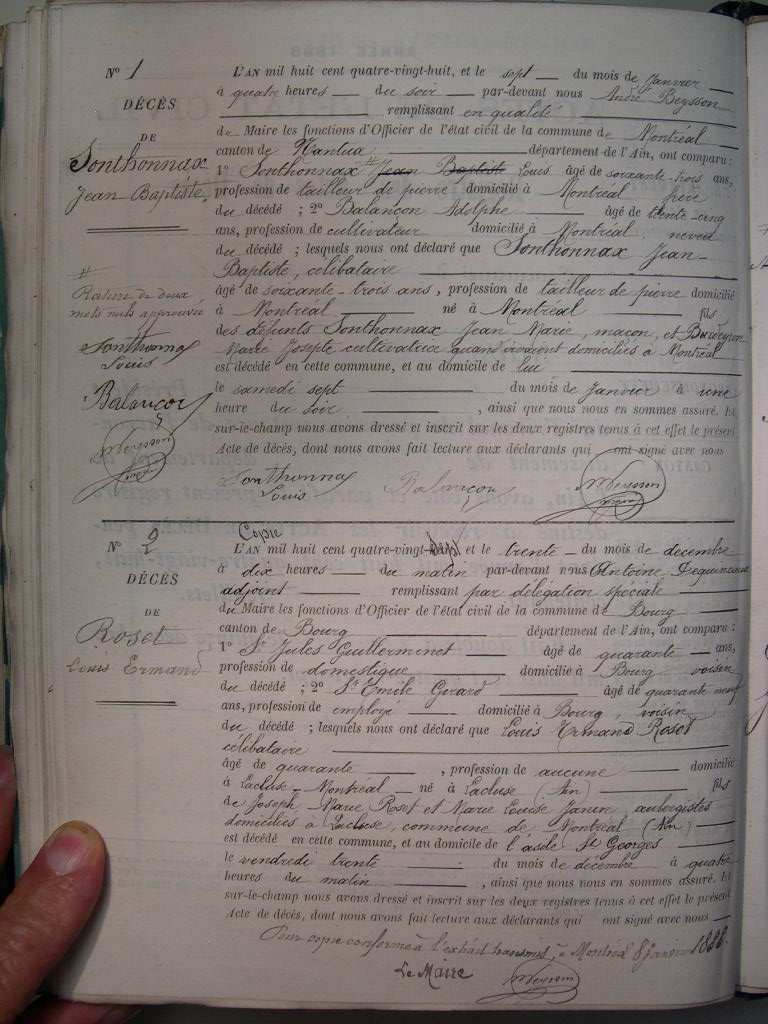 N° 1
DÉCÈS
DE
Sonthonnax
Jean-Baptiste,
#
Rature de deux
mots nuls approuvée
Sonthonnax
Louis
Balançon
L'AN mil huit cent quatre-vingt-huit, et le sept du mois de Janvier
à quatre heures du soir par-devant nous André Beysson
remplissant en qualité
de Maire les fonctions d'Officier de l'état civil de la commune de Montréal
canton de Nantua département de l'Ain, ont comparu :
1° Sonthonnax # Jean Baptiste Louis âgé de soixante-trois ans,
profession de tailleur de pierre domicilié à Montréal frère
du décédé ; 2° Balançon Adelphe âgé de trente-cinq
ans, profession de cultivateur domicilié à Montréal neveu
du décédé ; lesquels nous ont déclaré que Sonthonnax Jean-
Baptiste, célibataire
âgé de soixante-trois ans, profession de tailleur de pierre domicilié
à Montréal né à Montréal fils
des défunts Sonthonnax Jean Marie, maçon, et
Marie Josepte cultivatrice quand vivaient domiciliés à Montréal
est décédé en cette commune, et au domicile de lui
le samedi sept du mois de Janvier à une
heure du soir , ainsi que nous nous en sommes assuré. Et
sur-le-champ nous avons dressé et inscrit sur les deux registres tenus à cet effet le présent
Acte de décès, dont nous avons fait lecture aux déclarants qui ont signé avec nous
Sonthonnax
Louis
Balançon
N° 2
DÉCÈS
DE
Roset
Louis Ermand
Copie
L'AN mil huit cent quatre-vingt-sept et le trente du mois de décembre
à dix heures du matin par-devant nous Antoine
adjoint remplissant par délégation spéciale
du Maire les fonctions d'Officier de l'état civil de la commune de Bourg
canton de Bourg département de l'Ain, ont comparu :
1° Sr Jules Guillerminet âgé de quarante ans,
profession de domestique domicilié à Bourg voisin
du décédé ; 2° Sr Emile Girard âgé de quarante neuf
ans, profession de employé domicilié à Bourg, voisin
du décédé ; lesquels nous ont déclaré que Louis Ermand Roset
célibataire
âgé de quarante , profession de aucune domicilié
à Lacluse-Montréal né à Lacluse (Ain) fils
de Joseph-Marie Roset et Marie Louise Janin, aubergistes
domiciliés à Lacluse, commune de Montréal (Ain)
est décédé en cette commune, et au domicile de l'asile St Georges
le vendredi trente du mois de décembre à quatre
heures du matin , ainsi que nous nous en sommes assuré. Et
sur-le-champ nous avons dressé et inscrit sur les deux registres tenus à cet effet le présent
Acte de décès, dont nous avons fait lecture aux déclarants qui ont signé avec nous
Pour copie conforme à l'extrait transmis, à Montréal 8 janvier 1888.
Le Maire